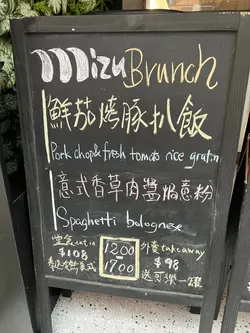 Mizu Brunch
鮮茄燒豚扒飯
Pork chop & fresh tomato rice gratin
意式香草肉醬焗意粉
Spaghetti bolognese
堂食 eat in
$108
1200
1700
外賣 takeaway
$98
送可樂一罐